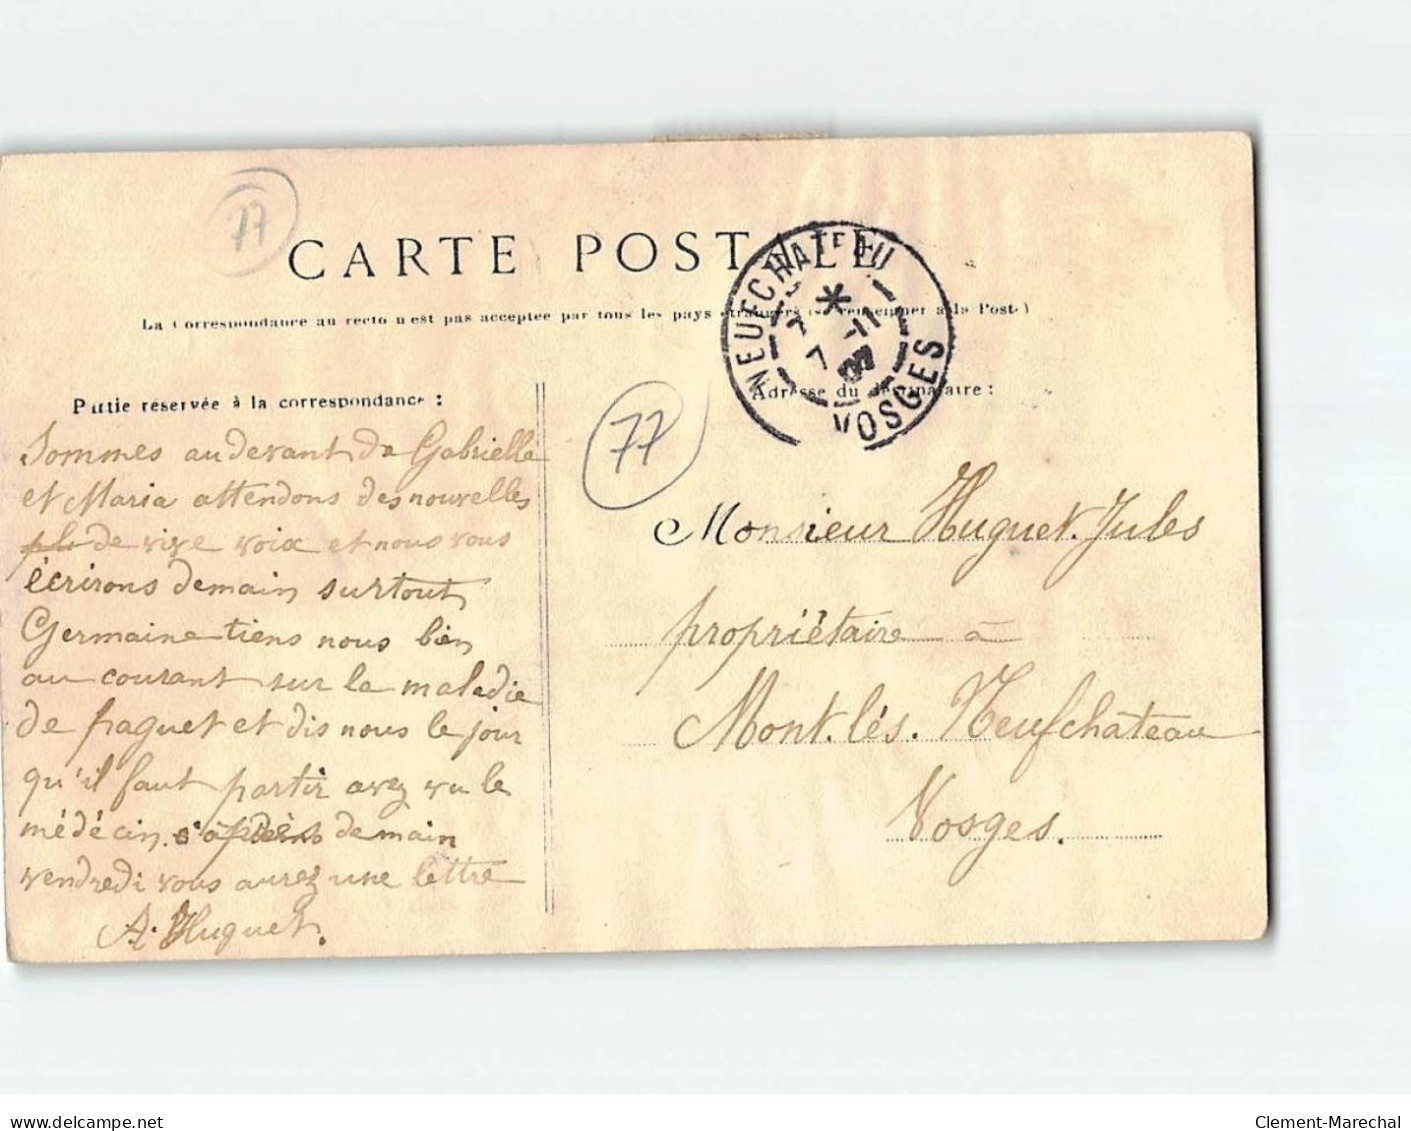 77
CARTE POSTALE
La Correspondance au recto n'est pas acceptée par tous les pays étrangers (se renseigner à la Poste)
NEUFCHATEAU
7 *
7 -11
07
VOSGES
Partie réservée à la correspondance :
Adresse du destinataire :
77
Sommes audevant de Gabrielle
et Maria attendons des nouvelles
de vive voix et nous vous
écrirons demain surtout
Germaine tiens nous bien
au courant sur la maladie
de paquet et dis nous le jour
qu'il faut partir avez vu le
médécin demain
vendredi vous aurez une lettre
A. Huguet.
Monsieur Huguet. Jules
propriétaire à
Mont. lés. Neufchâteau
Vosges.
www.delcampe.net
Clement-Marechal